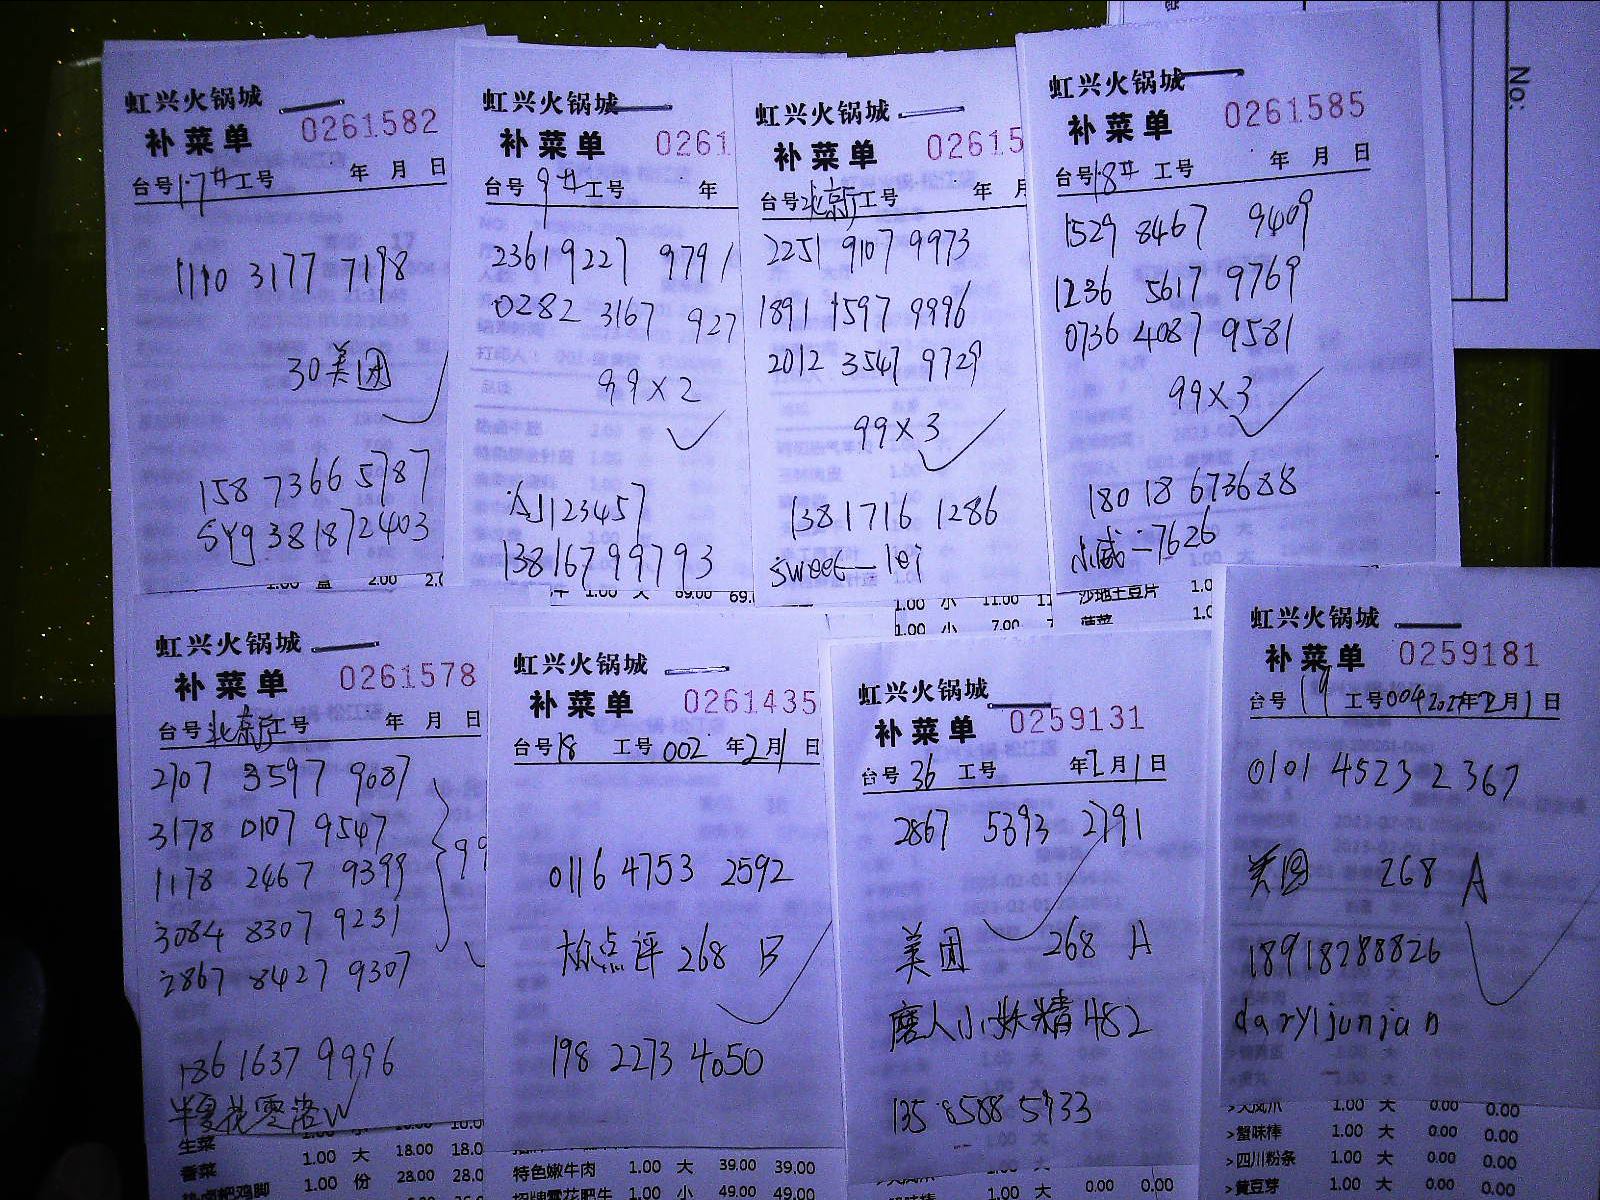 虹兴火锅城
补菜单 0261582
台号 17# 工号 年 月 日
1110 3177 7198
30美团
158 7366 5787
SYg381872403
虹兴火锅城
补菜单 0261
台号 9# 工号 年
2361 9227 979
0282 3167 927
99×2
AJ123457
13816799793
虹兴火锅城
补菜单 02615
台号 北京厅 工号 年 月
2251 9107 9973
1891 1597 9996
2012 3547 9729
99×3
138 1716 1286
sweet—lei
虹兴火锅城
补菜单 0261585
台号 18# 工号 年 月 日
1529 8467 9409
1236 5617 9769
0736 4087 9581
99×3
180 18673688
7626
1.00 2.00 2.0
1.00 大 69.00 69.
1.00 小 11.00 11
1.00 小 7.00 7
沙地土豆片 1.0
菠菜 1.0
虹兴火锅城
补菜单 0261578
台号 北京厅 工号 年 月 日
2707 3597 9087
3178 0107 9547
1178 2467 9399
3084 8307 9231
2867 8427 9307
99
186 1637 9996
半夏花零落W
生菜 1.00 大 18.00 18.0
香菜 1.00 份 28.00 28.0
虹兴火锅城
补菜单 0261435
台号 18 工号 002 年 2月1日
0116 4753 2592
大众点评 268 B
198 2273 4050
特色嫩牛肉 1.00 大 39.00 39.00
招牌雪花肥牛 1.00 小 49.00 49.00
虹兴火锅城
补菜单 0259131
台号 36 工号 年 2月1日
2867 5393 2791
美团 268 A
磨人小妖精482
135 8588 5733
虹兴火锅城
补菜单 0259181
台号 19 工号 004 年2月1日
0101 4523 2367
美团 268 A
18918288826
daryljunjan
>大凤爪 1.00 大 0.00 0.00
>蟹味棒 1.00 大 0.00 0.00
>四川粉条 1.00 大 0.00 0.00
>黄豆芽 1.00 大 0.00 0.00
No: